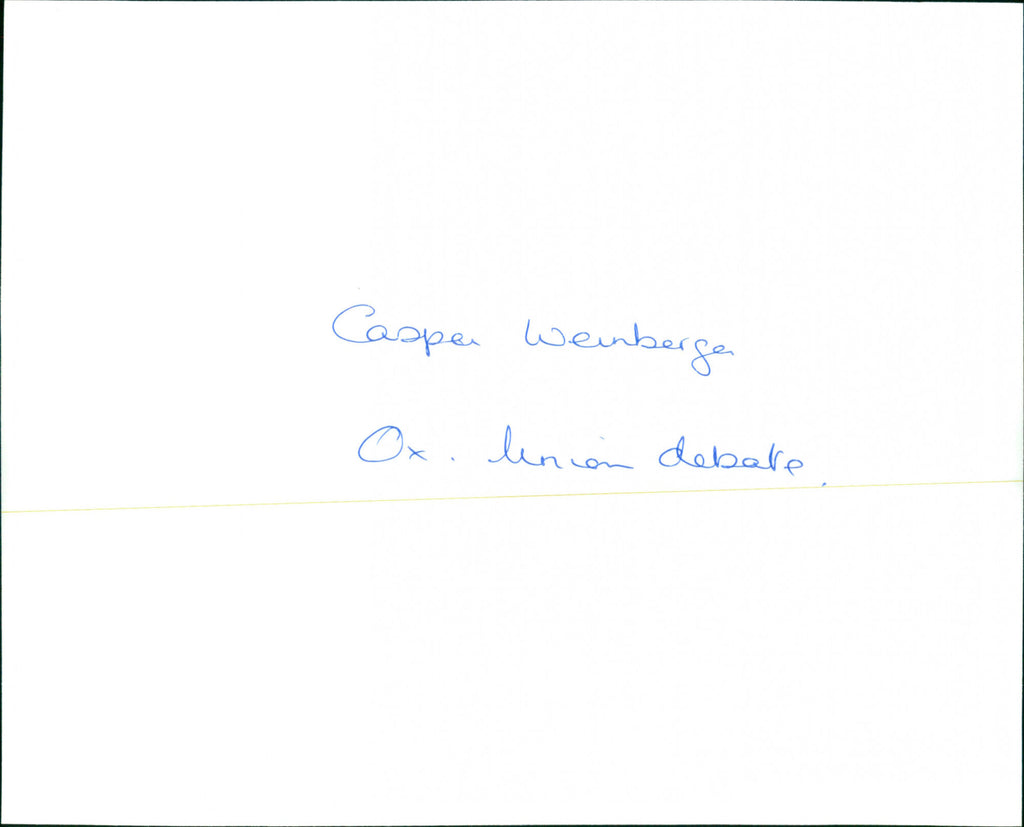 Casper Weinberger
Ox. Union debate.